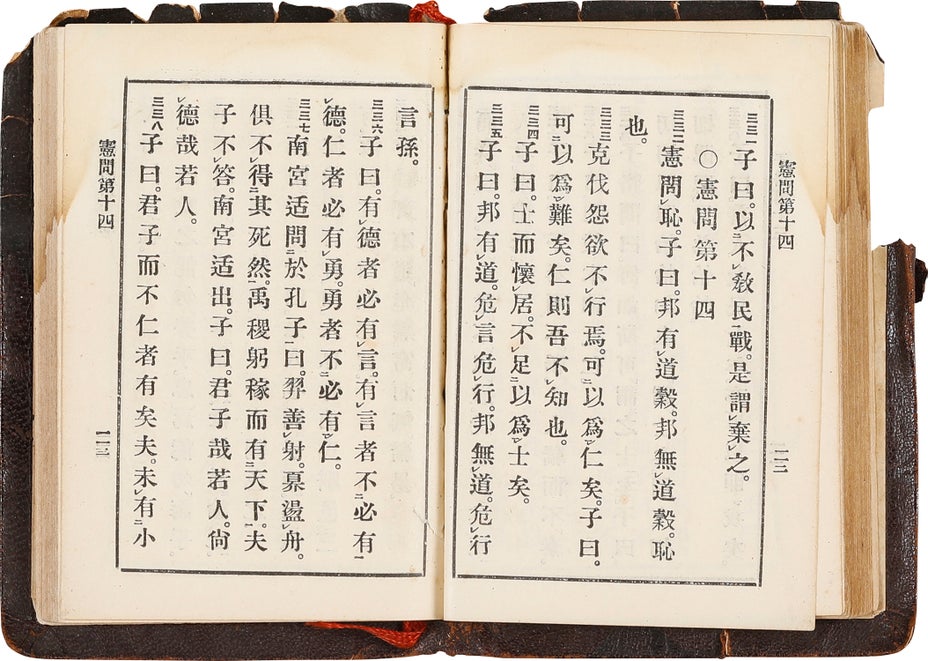 憲問第十四
一一二
三三一 子曰。以㆑不㆑敎民㆒戰。是謂㆑棄㆑之。
〇憲問第十四
三三二 憲問㆑恥。子曰。邦有㆑道穀。邦無㆑道穀。恥
也。
三三三 克伐怨欲不㆑行焉。可㆓以爲㆒㆑仁矣。子曰。
可㆓以爲㆒㆑難矣。仁則吾不㆑知也。
三三四 子曰。士而懷㆑居。不㆑足㆓以爲㆒㆑士矣。
三三五 子曰。邦有㆑道。危㆑言危㆑行。邦無㆑道。危㆑行
言孫。
三三六 子曰。有㆑德者必有㆑言。有㆑言者不㆓必有㆒
㆑德。仁者必有㆑勇。勇者不㆓必有㆒㆑仁。
三三七 南宮适問㆓於孔子㆒曰。羿善㆑射。奡盪㆑舟。
俱不㆑得㆓其死㆒然。禹稷躬稼而有㆓天下㆒。夫
子不㆑答。南宮适出。子曰。君子哉若人。尙
㆑德哉若人。
三三八 子曰。君子而不仁者有矣夫。未㆑有㆓小
憲問第十四
一一三